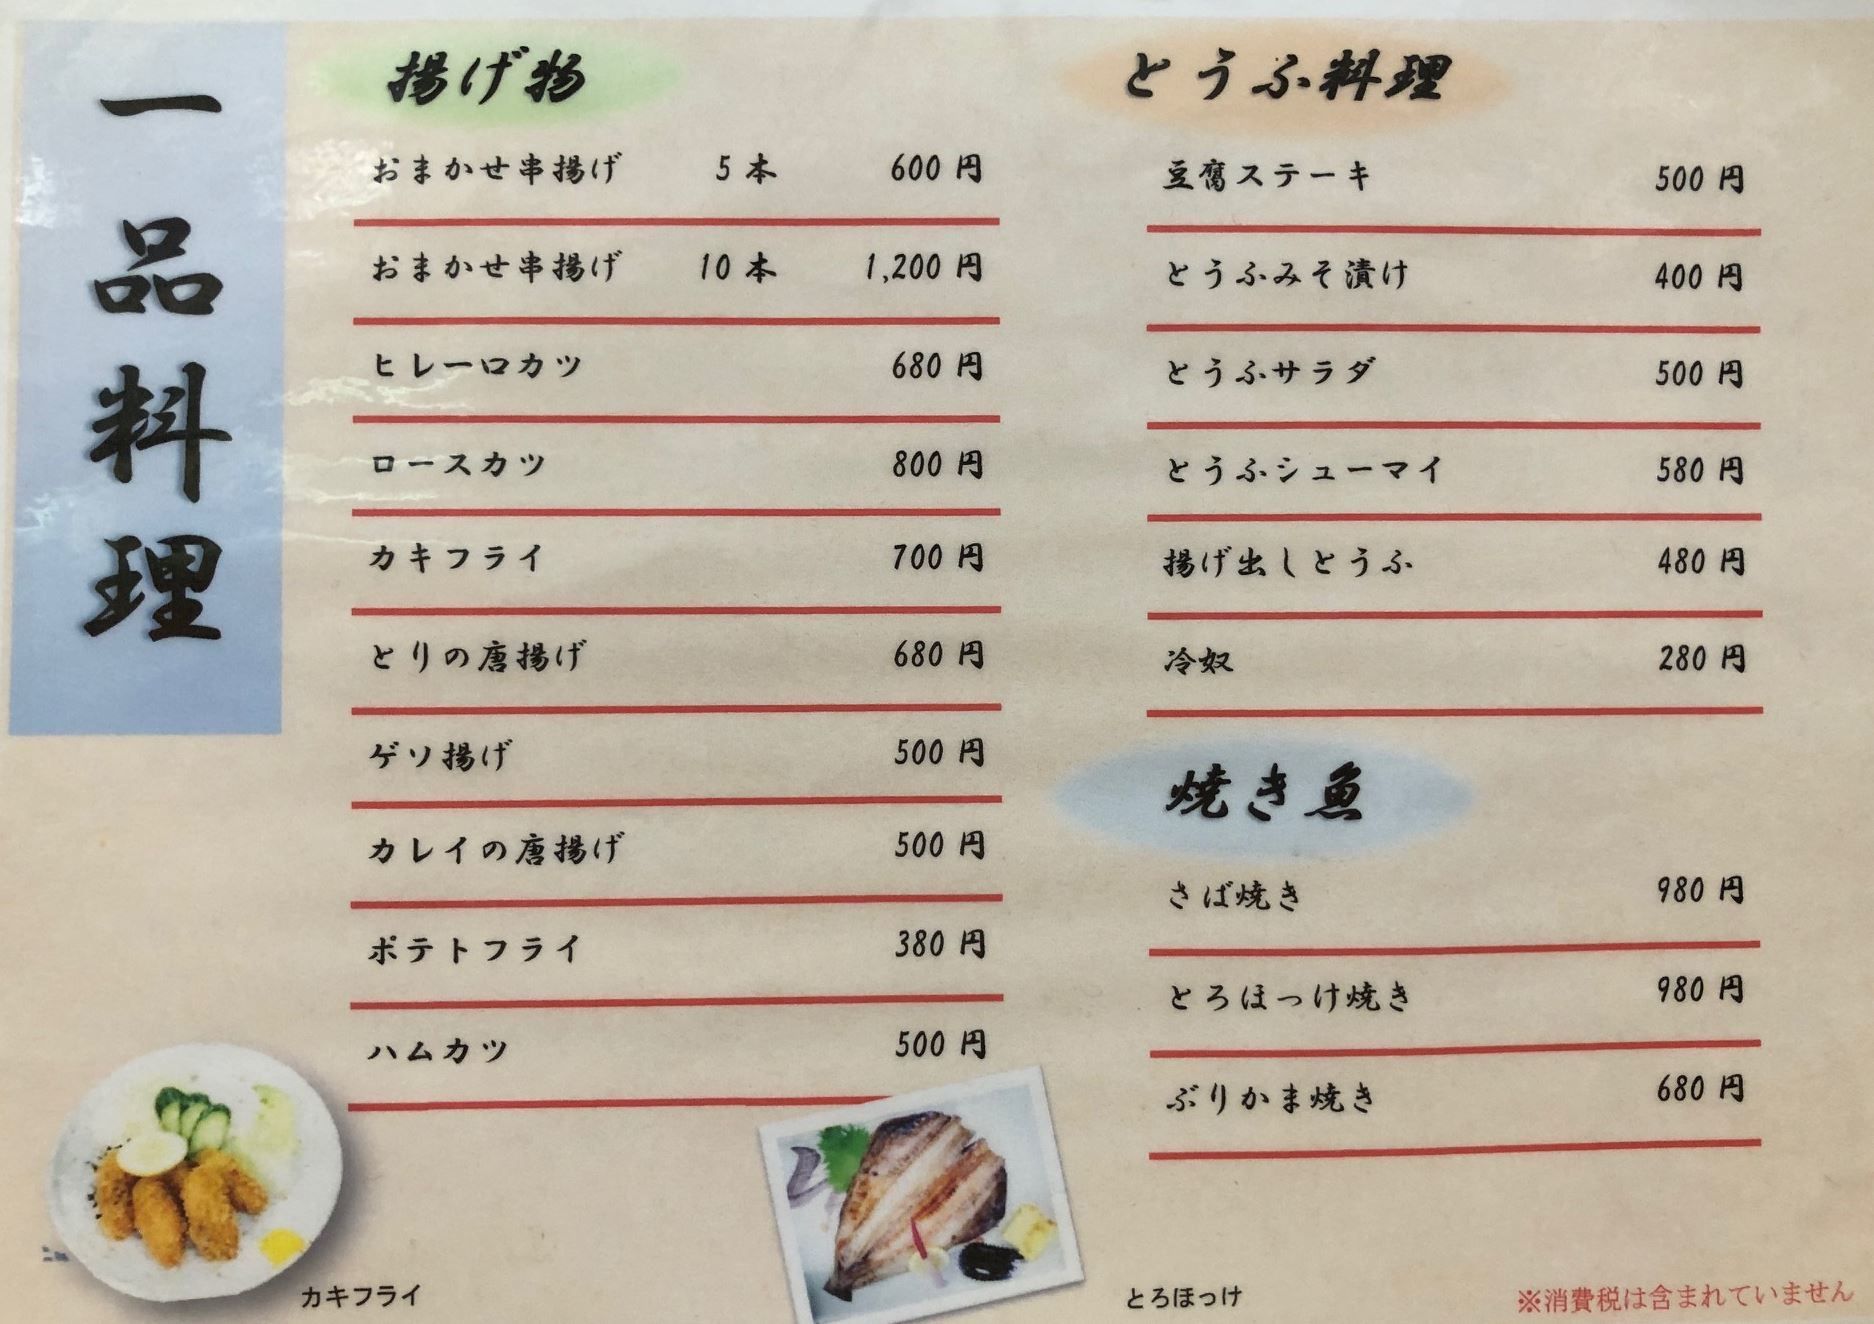 一品料理
揚げ物
おまかせ串揚げ 5本 600円
おまかせ串揚げ 10本 1,200円
ヒレ一口カツ 680円
ロースカツ 800円
カキフライ 700円
とりの唐揚げ 680円
ゲソ揚げ 500円
カレイの唐揚げ 500円
ポテトフライ 380円
ハムカツ 500円
カキフライ
とうふ料理
豆腐ステーキ 500円
とうふみそ漬け 400円
とうふサラダ 500円
とうふシューマイ 580円
揚げ出しとうふ 480円
冷奴 280円
焼き魚
さば焼き 980円
とろほっけ焼き 980円
ぶりかま焼き 680円
とろほっけ
※消費税は含まれていません